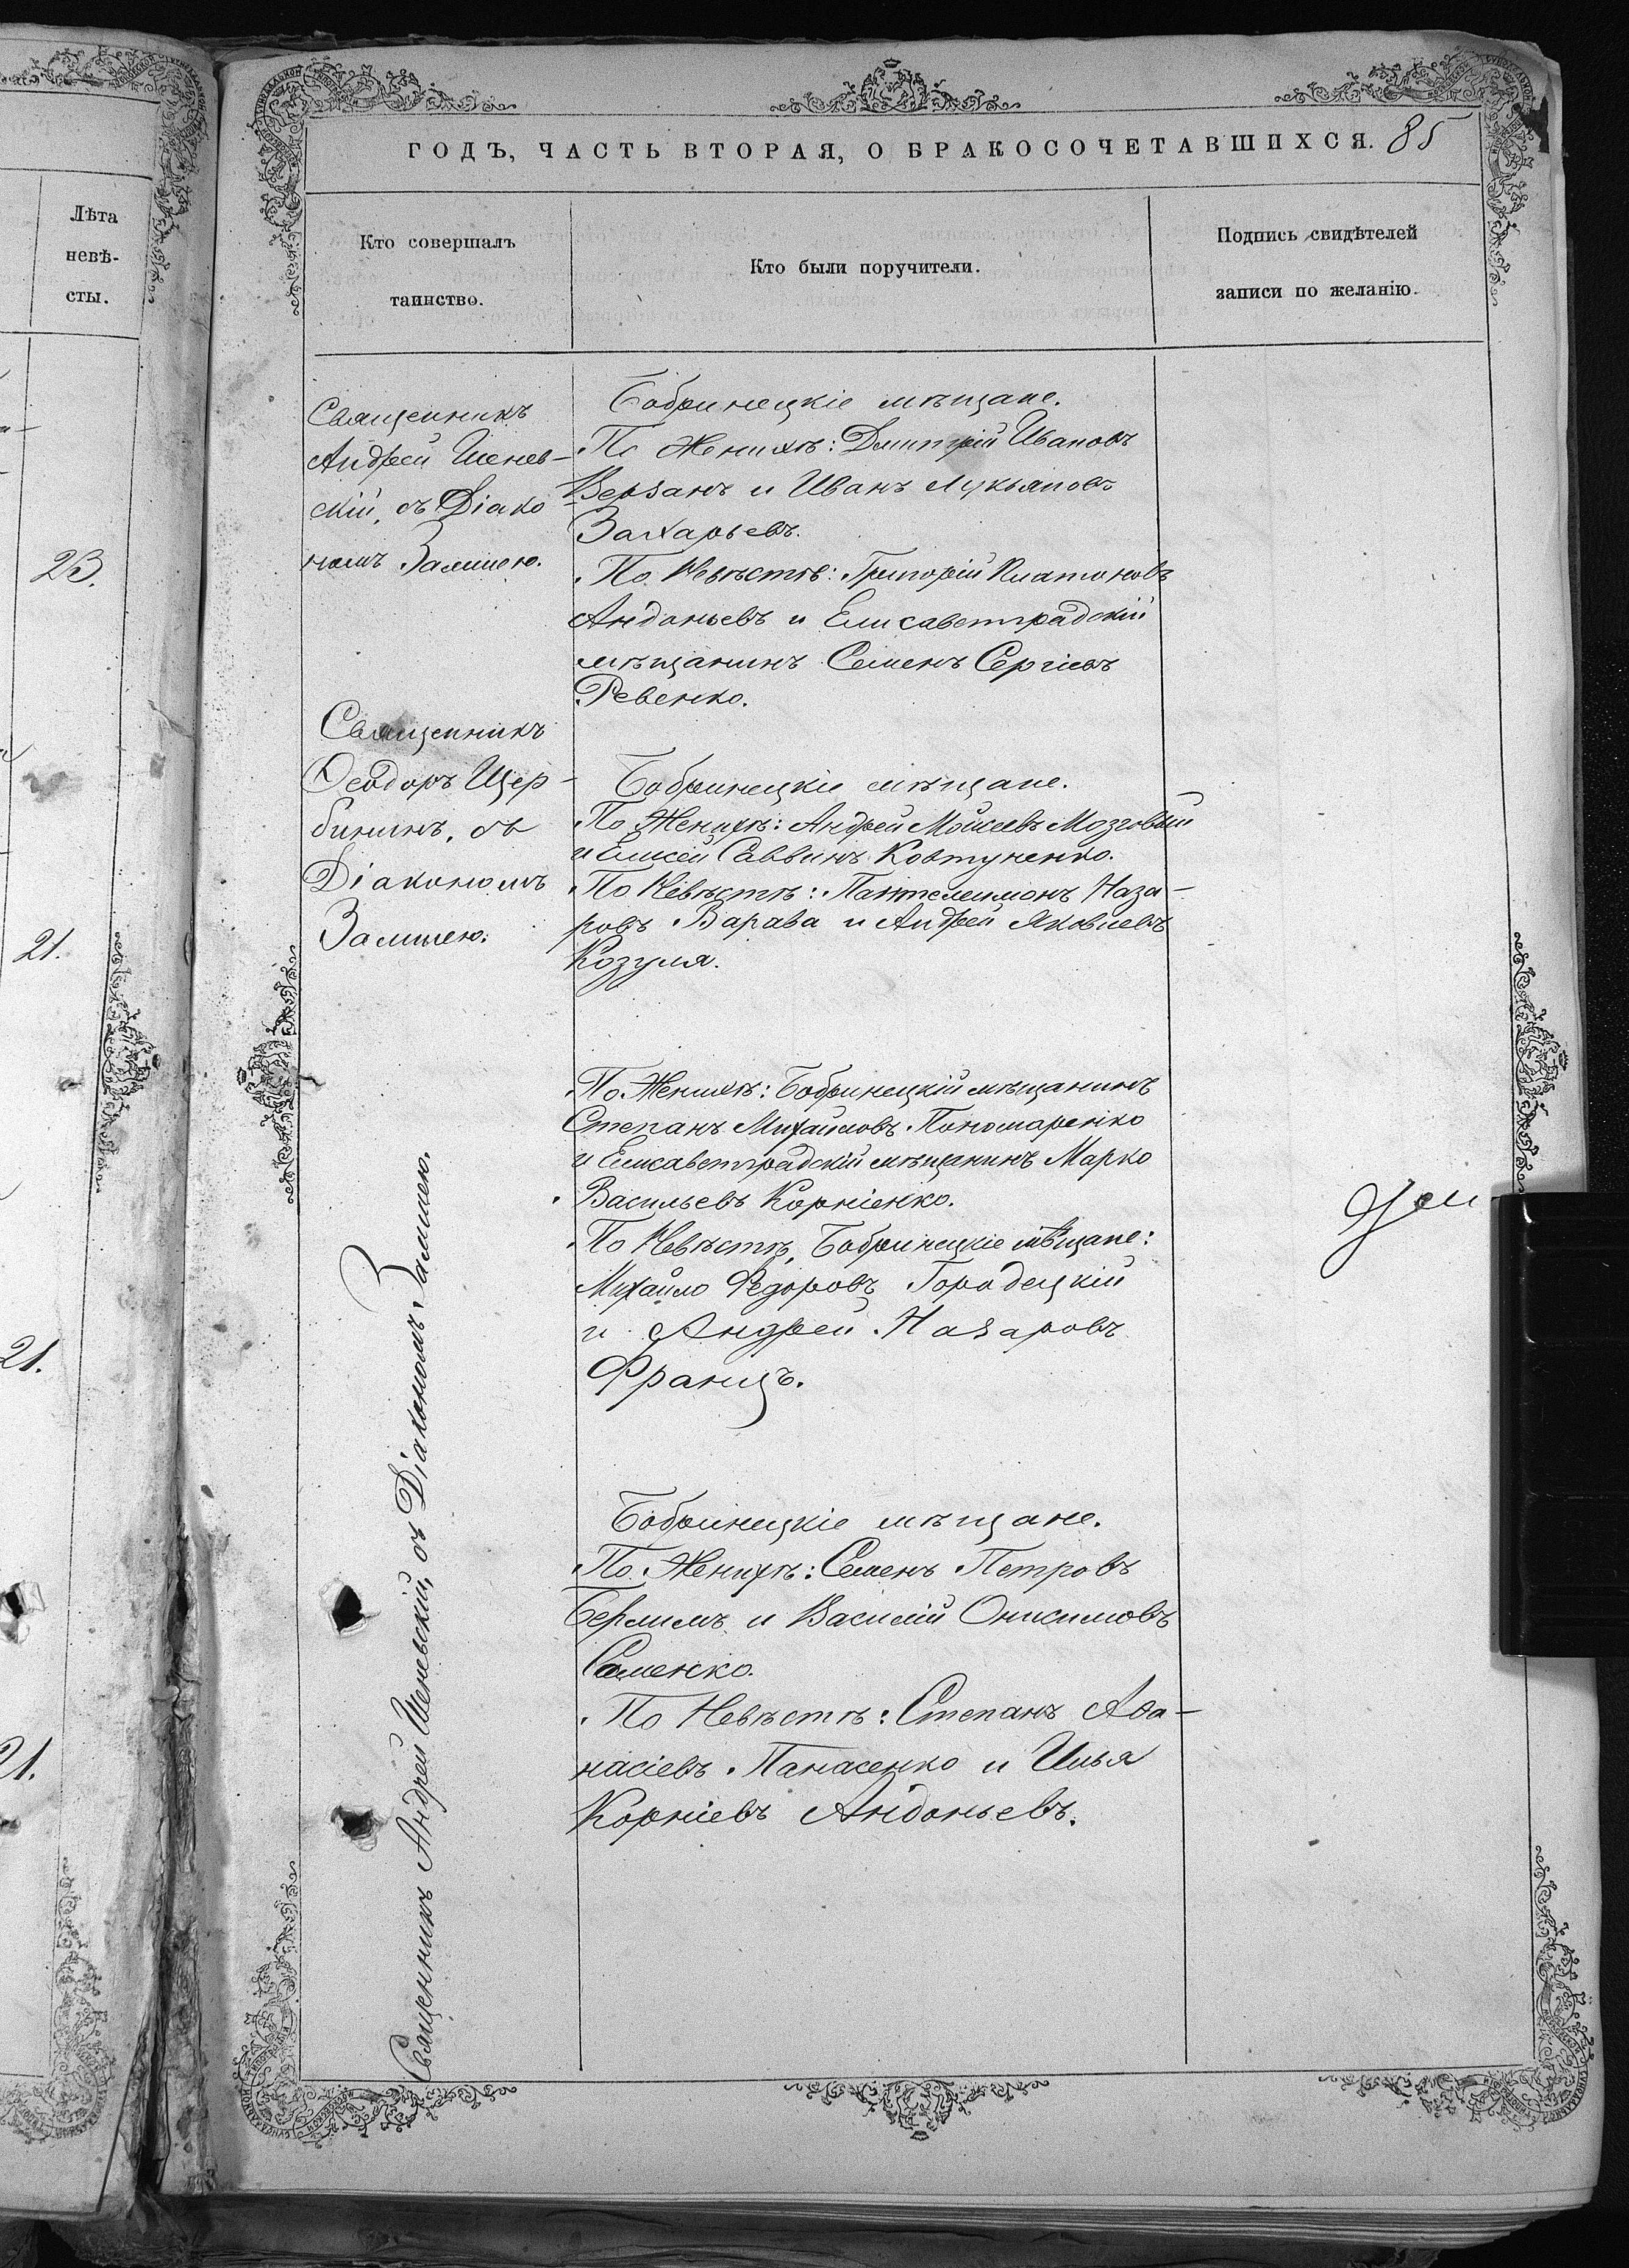 Лѣта
невѣ-
сты.
23.
21.
21.
21.
ГОДЪ, ЧАСТЬ ВТОРАЯ, О БРАКОСОЧЕТАВШИХСЯ. 85
Кто совершалъ
таинство.
Кто были поручители.
Подпись свидѣтелей
записи по желанію.
Священникъ
Андрей Шенев-
скій, съ Діако
номъ Залшею.
Бобринецкіе мѣщане.
По Женихѣ: Дмитрій Ивановъ
Верзанъ и Иванъ Лукьяновъ
Захарьевъ.
По Невѣстѣ: Григорій Платоновъ
Андоньевъ и Елисаветградскій
мѣщанинъ Семенъ Сергіевъ
Ревенко.
Священникъ
Ѳеодоръ Щер-
бининъ, съ
Діакономъ
Залшею.
Бобринецкіе мѣщане.
По Женихѣ: Андрей Моисеевъ Мозговый
и Елисей Саввинъ Ковтуненко.
По Невѣстѣ: Пантелеимонъ Наза-
ровъ Варава и Андрей Яковлевъ
Козуля.
Священникъ Андрей Шеневскій, съ Діакономъ Залшею.
По Женихѣ: Бобринецкій мѣщанинъ
Степанъ Михайловъ Пономаренко
и Елисаветградскій мѣщанинъ Марко
Васильевъ Корніенко.
По Невѣстѣ, Бобринецкіе мѣщане:
Михайло Федоровъ Городецкій
и Андрей Назаровъ
Францъ.
Бобринецкіе мѣщане.
По Женихѣ: Семенъ Петровъ
и Василій Онисимовъ
Саменко.
По Невѣстѣ: Степанъ Аѳа-
насіевъ Панасенко и Илья
Корніевъ Андоньевъ.